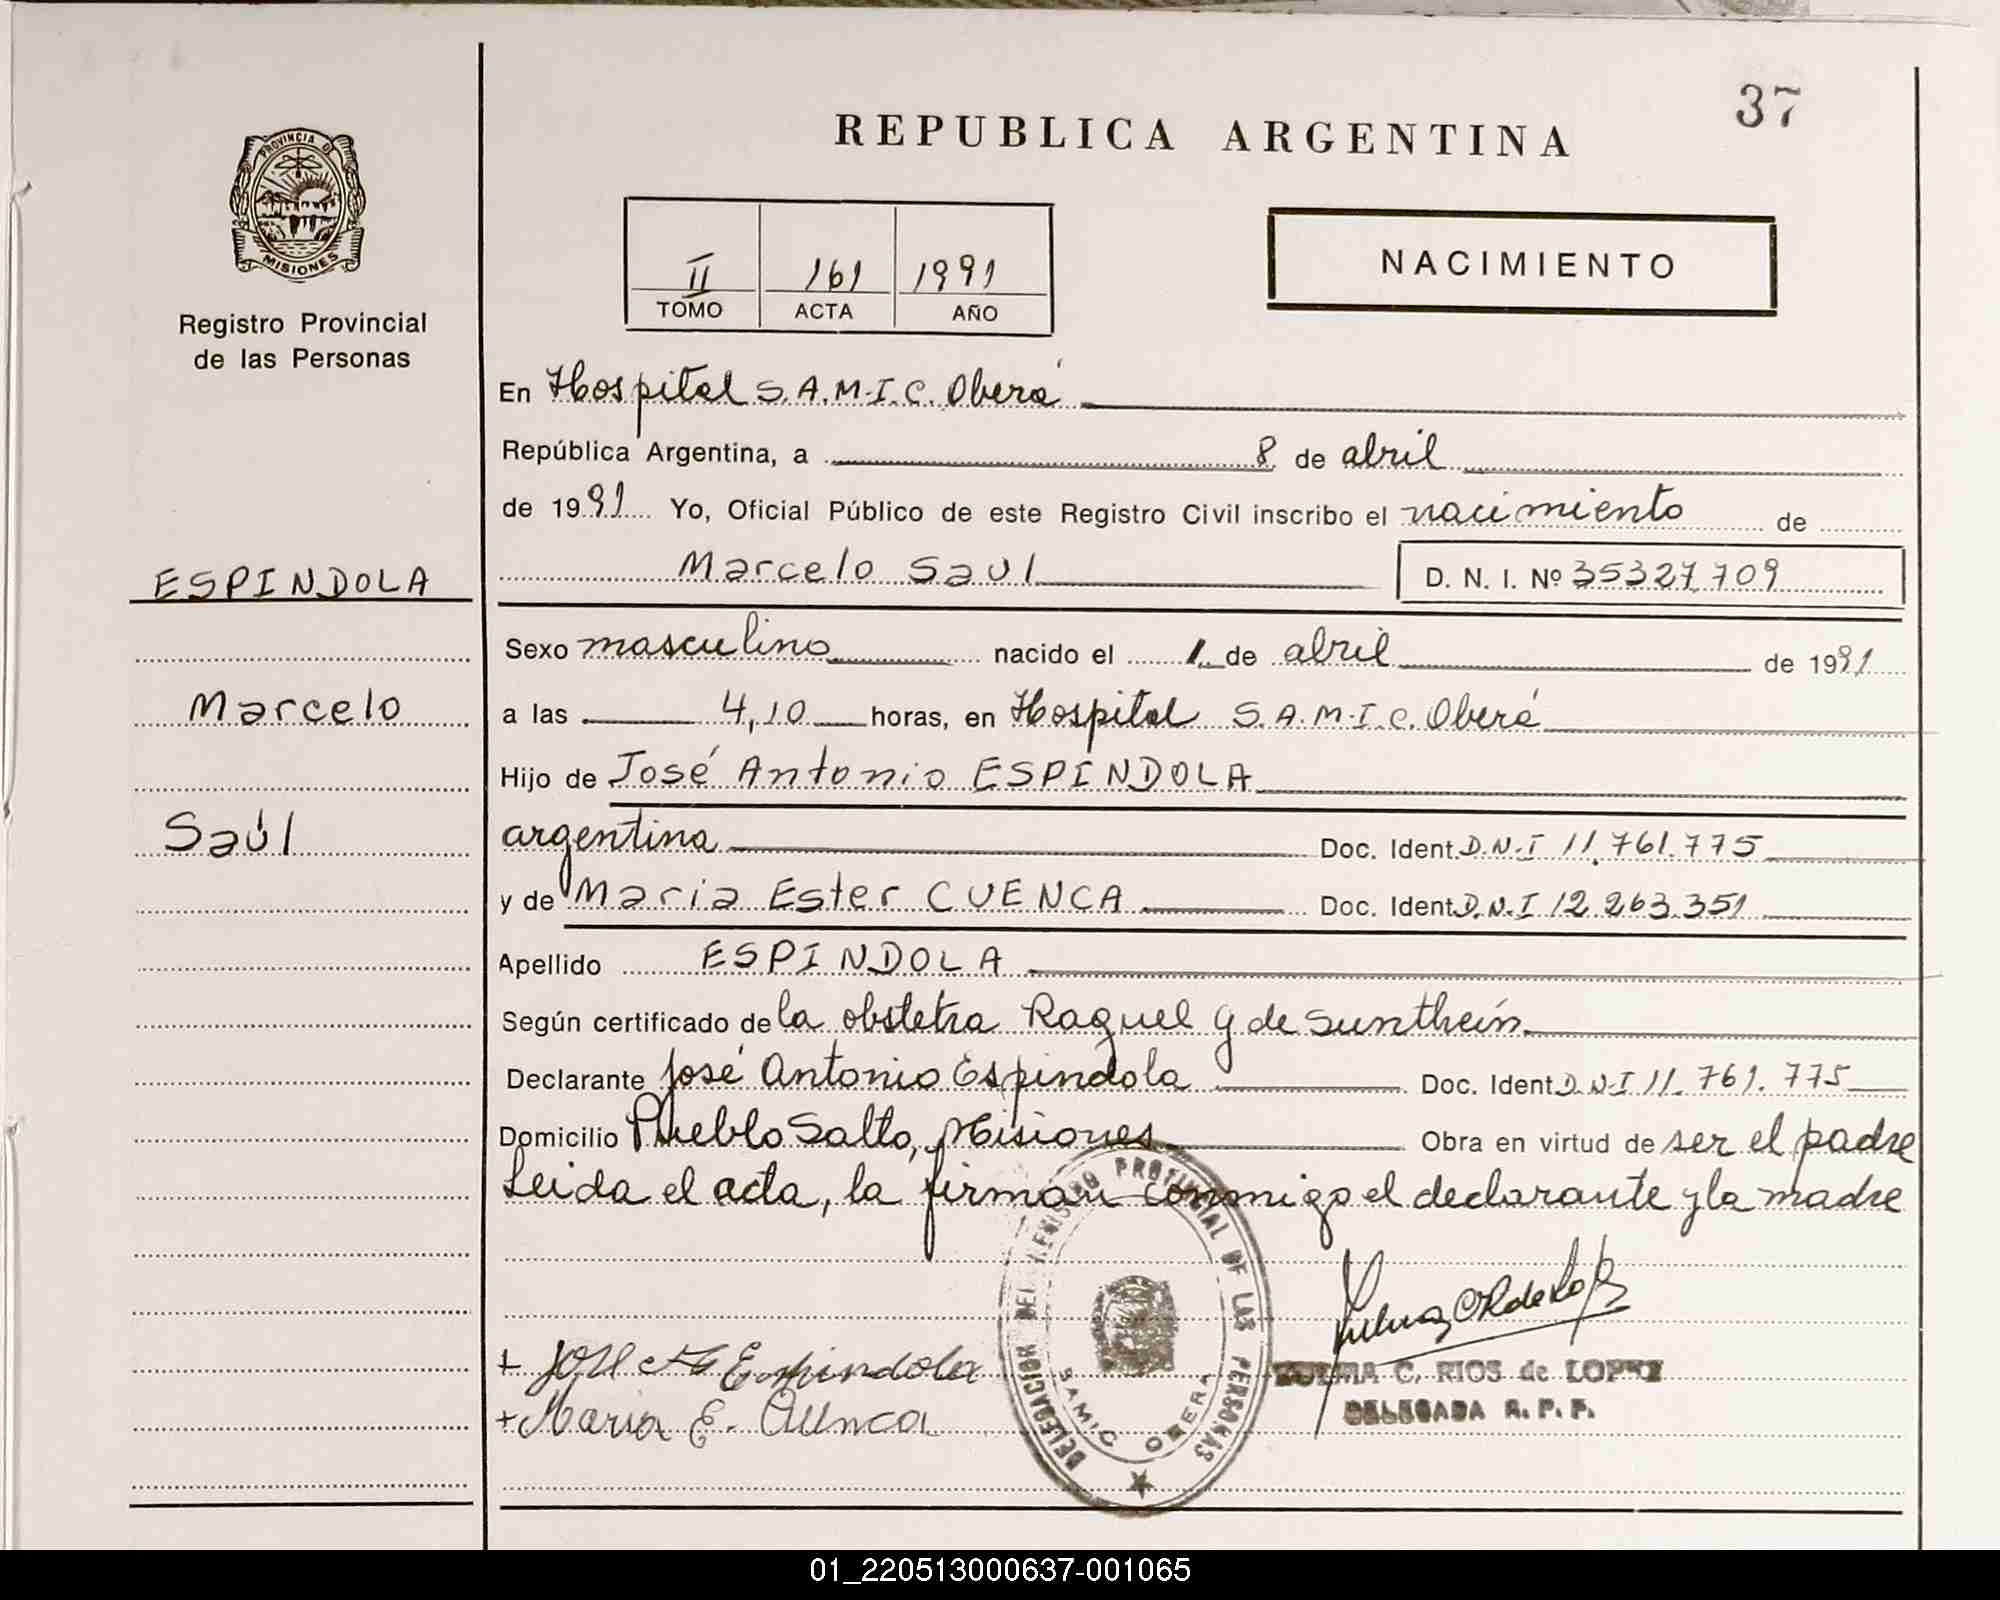 37
REPUBLICA ARGENTINA
PROVINCIA D
MISIONES
Registro Provincial
de las Personas
II 161 1991
TOMO ACTA AÑO
NACIMIENTO
En Hospital S.A.M.I.C. Oberá
República Argentina, a 8 de abril
de 1991 Yo, Oficial Público de este Registro Civil inscribo el nacimiento de
Marcelo Saul D. N. I. Nº 35327.709
ESPINDOLA
Marcelo
Saúl
Sexo masculino nacido el 1 de abril de 1991
a las 4,10 horas, en Hospital S.A.M.I.C. Oberá
Hijo de José Antonio ESPINDOLA
argentina Doc. Ident. D.N.I 11.761.775
y de Maria Ester CUENCA Doc. Ident. D.N.I 12.263.351
Apellido ESPINDOLA
Según certificado de la obstetra Raquel G de Sunthein
Declarante José Antonio Espindola Doc. Ident. D.N.I 11.761.775
Domicilio Pueblo Salto, Misiones Obra en virtud de ser el padre
Leida el acta, la firman conmigo el declarante y la madre
+ José A Espindola
+ Maria E. Cuenca
DELEGACION DEL REGISTRO PROVINCIAL DE LAS PERSONAS
SAMIC OBERA
ZULMA C. RIOS de LOPEZ
DELEGADA R. P. P.
01_220513000637-001065